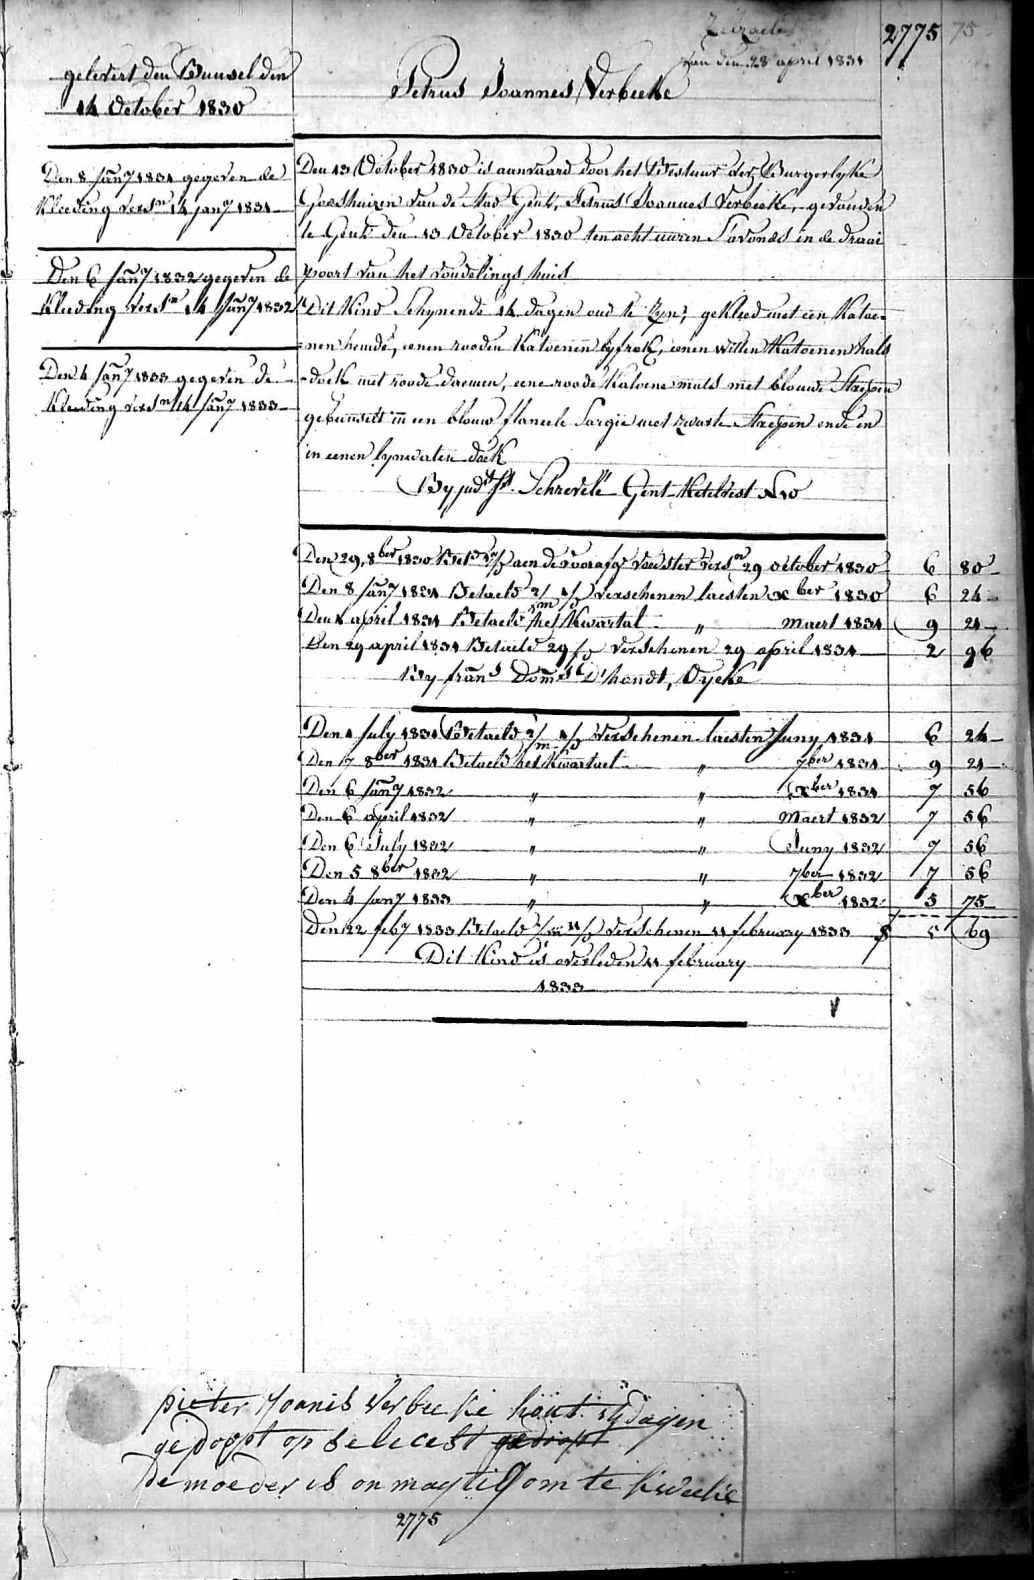 2775 75
van den 28 april 1831
gelevert den Bunsel den
14 October 1830
Petrus Joannes Verbeeke
Den 8 Jan̄y 1831 gegeven de
Kleeding versn 14 jany 1831
Den 6 Jan̄y 1832 gegeven de
Kleeding versn 14 Jan̄y 1832
Den 4 Jan̄y 1833 gegeven de
Kleeding versn 14 Jan̄y 1833
Den 13 October 1830 is aanvaard door het Bestuur der Burgerlyke
Godshuizen van de Stad Gent, Petrus Joannes Verbeeke, gevonden
te Gend den 13 October 1830 ten acht uuren S'avonds in de draai
poort van het vondelings huis
Dit Kind Schynende 14 dagen oud te zyn, gekleed met een Katoe-
nen hemde, eenen rooden Katoenen lyfrok, eenen witten Katoenen hals
doek met roode daemen, eene roode Katoene muts met blouwe Streepen
gebunselt in een blouw flaneele Sargie met zwarte Streepen ende in
in eenen lynwaten doek
By jud Schrevele Gent Ketelvest No
Den 29 8ber 1830 Betd aen de voorafge Voester versn 29 october 1830 6 80
Den 8 Jan̄y 1831 Betaeld 2/m 2/d verschenen laesten xber 1830 6 24
Den 4 april 1831 Betaeld het Kwartal " Maert 1831 9 21
Den 29 april 1831 Betaeld 29/d verschenen 29 april 1831 2 96
By frans Dom D'hondt, Oycke
Den 4 July 1831 Betaeld 2/m 2/d verschenen laesten Juny 1831 6 24
Den 7 8ber 1831 Betaeld het Kwartael " 7ber 1831 9 21
Den 6 Jan̄y 1832 " " xber 1831 7 56
Den 6 april 1832 " " Maert 1832 7 56
Den 6 July 1832 " " Juny 1832 7 56
Den 5 8ber 1832 " " 7ber 1832 7 56
Den 4 Jany 1833 " " xber 1832 5 75
Den 22 feby 1833 Betaeld 1/m 11/d verschenen 11 february 1833 5 69
Dit Kind is overleden 11 february
1833
pieter Joanis Verbeeke hout dagen
gedoopt op seleest gedropt
de moeder is onmagtig om te kweeke
2775